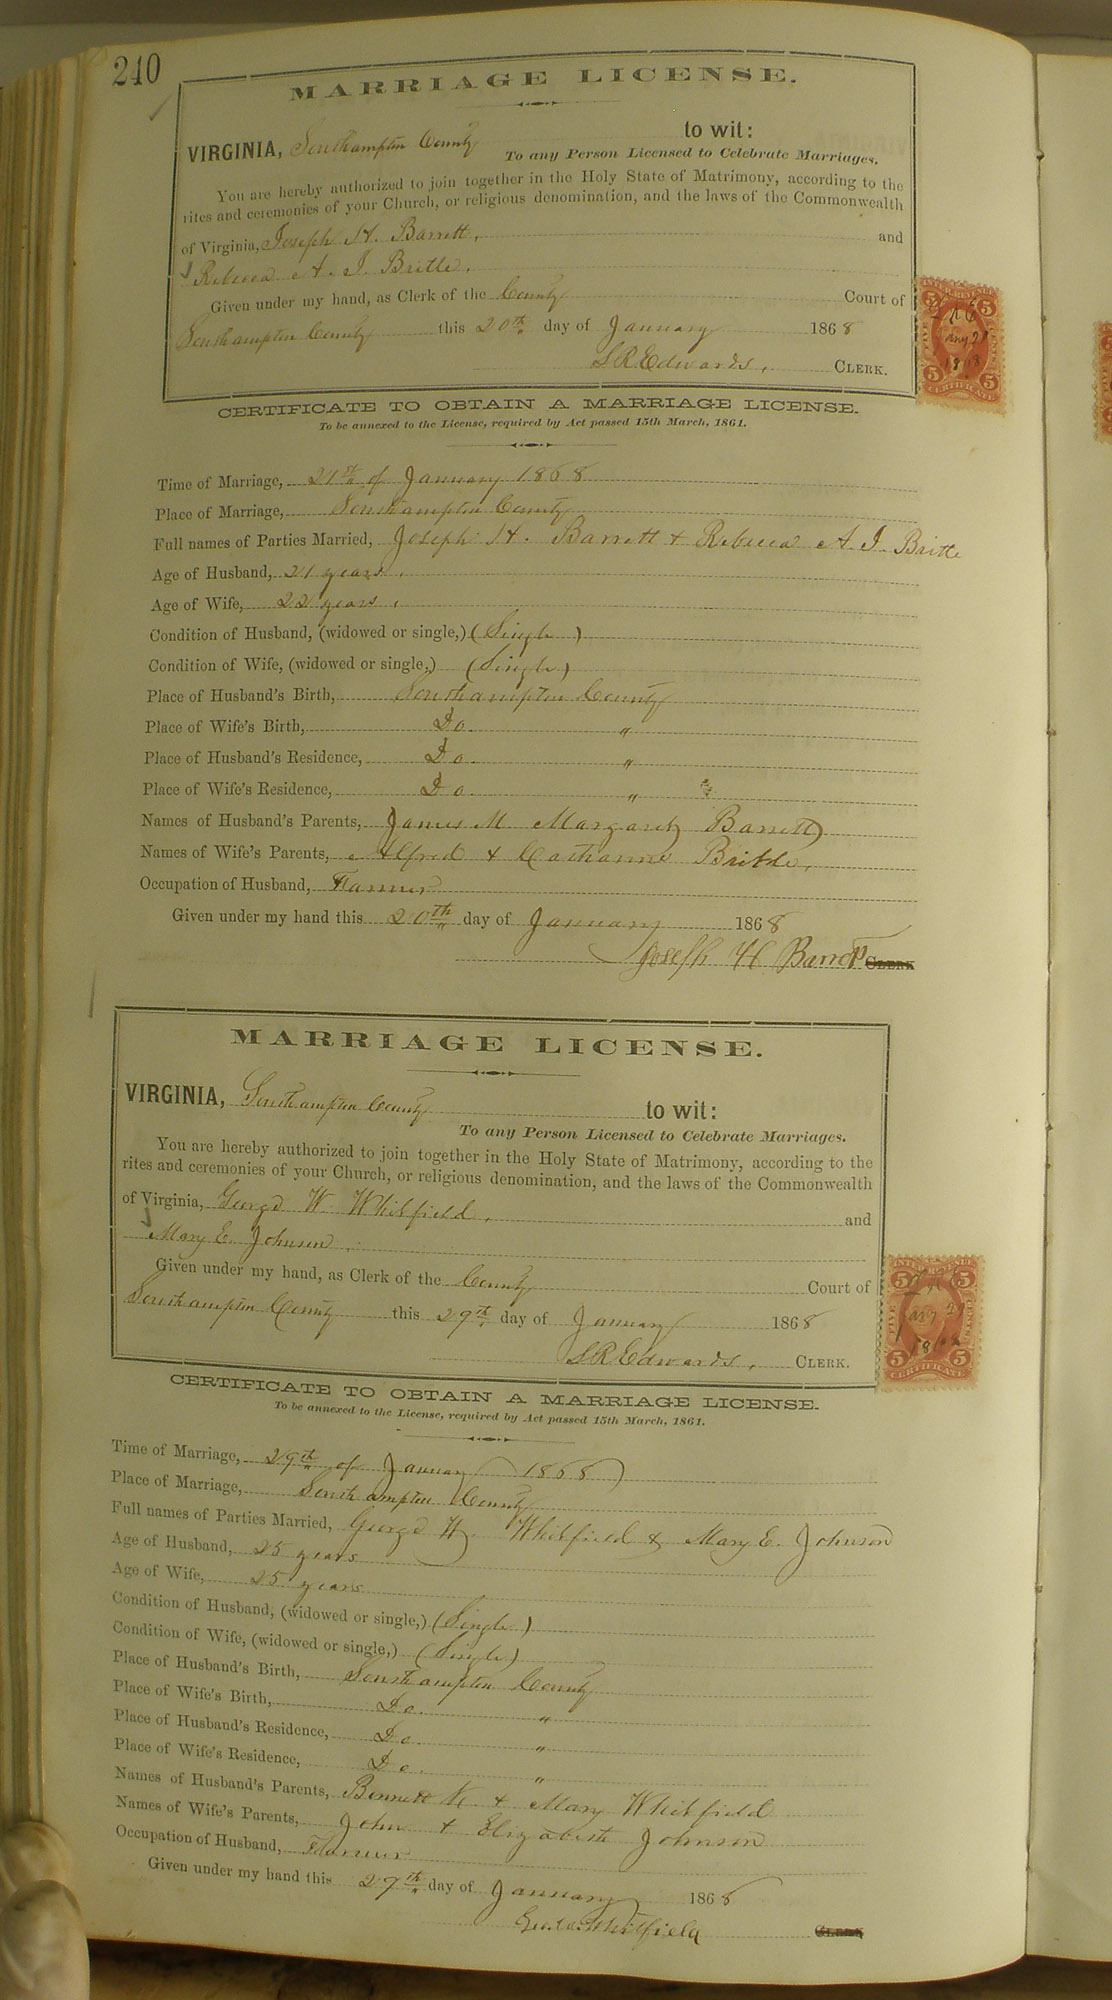 240
MARRIAGE LICENSE.
VIRGINIA, Southampton County to wit:
To any Person Licensed to Celebrate Marriages.
You are hereby authorized to join together in the Holy State of Matrimony, according to the
rites and ceremonies of your Church, or religious denomination, and the laws of the Commonwealth
of Virginia, Joseph H. Barrett, and
Rebecca A. J. Britle,
Given under my hand, as Clerk of the County Court of
Southampton County this 20th day of January 1868
L R Edwards, CLERK.
INTER. REVENUE
5 5
FIVE CENTS
5 5
CERTIFICATE
CERTIFICATE TO OBTAIN A MARRIAGE LICENSE.
To be annexed to the License, required by Act passed 15th March, 1861.
Time of Marriage, 21st of January 1868
Place of Marriage, Southampton County
Full names of Parties Married, Joseph H. Barrett & Rebecca A. J. Britle
Age of Husband, 21 years.
Age of Wife, 22 years,
Condition of Husband, (widowed or single,) (Single)
Condition of Wife, (widowed or single,) (Single)
Place of Husband's Birth, Southampton County
Place of Wife's Birth, Do. "
Place of Husband's Residence, Do. "
Place of Wife's Residence, Do. "
Names of Husband's Parents, James M. Margaret Barrett
Names of Wife's Parents, Alfred & Catharine Britle,
Occupation of Husband, Farmer
Given under my hand this 20th day of January 1868
Joseph H Barrett CLERK
MARRIAGE LICENSE.
VIRGINIA, Southampton County to wit:
To any Person Licensed to Celebrate Marriages.
You are hereby authorized to join together in the Holy State of Matrimony, according to the
rites and ceremonies of your Church, or religious denomination, and the laws of the Commonwealth
of Virginia, George W. Whitfield, and
Mary E. Johnson,
Given under my hand, as Clerk of the County Court of
Southampton County this 29th day of January 1868
L R Edwards, CLERK.
INTER. REVENUE
5 5
FIVE CENTS
5 5
CERTIFICATE
CERTIFICATE TO OBTAIN A MARRIAGE LICENSE.
To be annexed to the License, required by Act passed 15th March, 1861.
Time of Marriage, 29th of January 1868
Place of Marriage, Southampton County
Full names of Parties Married, George W. Whitfield & Mary E. Johnson
Age of Husband, 25 years
Age of Wife, 25 years
Condition of Husband, (widowed or single,) (Single)
Condition of Wife, (widowed or single,) (Single)
Place of Husband's Birth, Southampton County
Place of Wife's Birth, Do. "
Place of Husband's Residence, Do. "
Place of Wife's Residence, Do. "
Names of Husband's Parents, Bennett & Mary Whitfield
Names of Wife's Parents, John & Elizabeth Johnson
Occupation of Husband, Farmer
Given under my hand this 27th day of January 1868
Geo. W. Whitfield CLERK